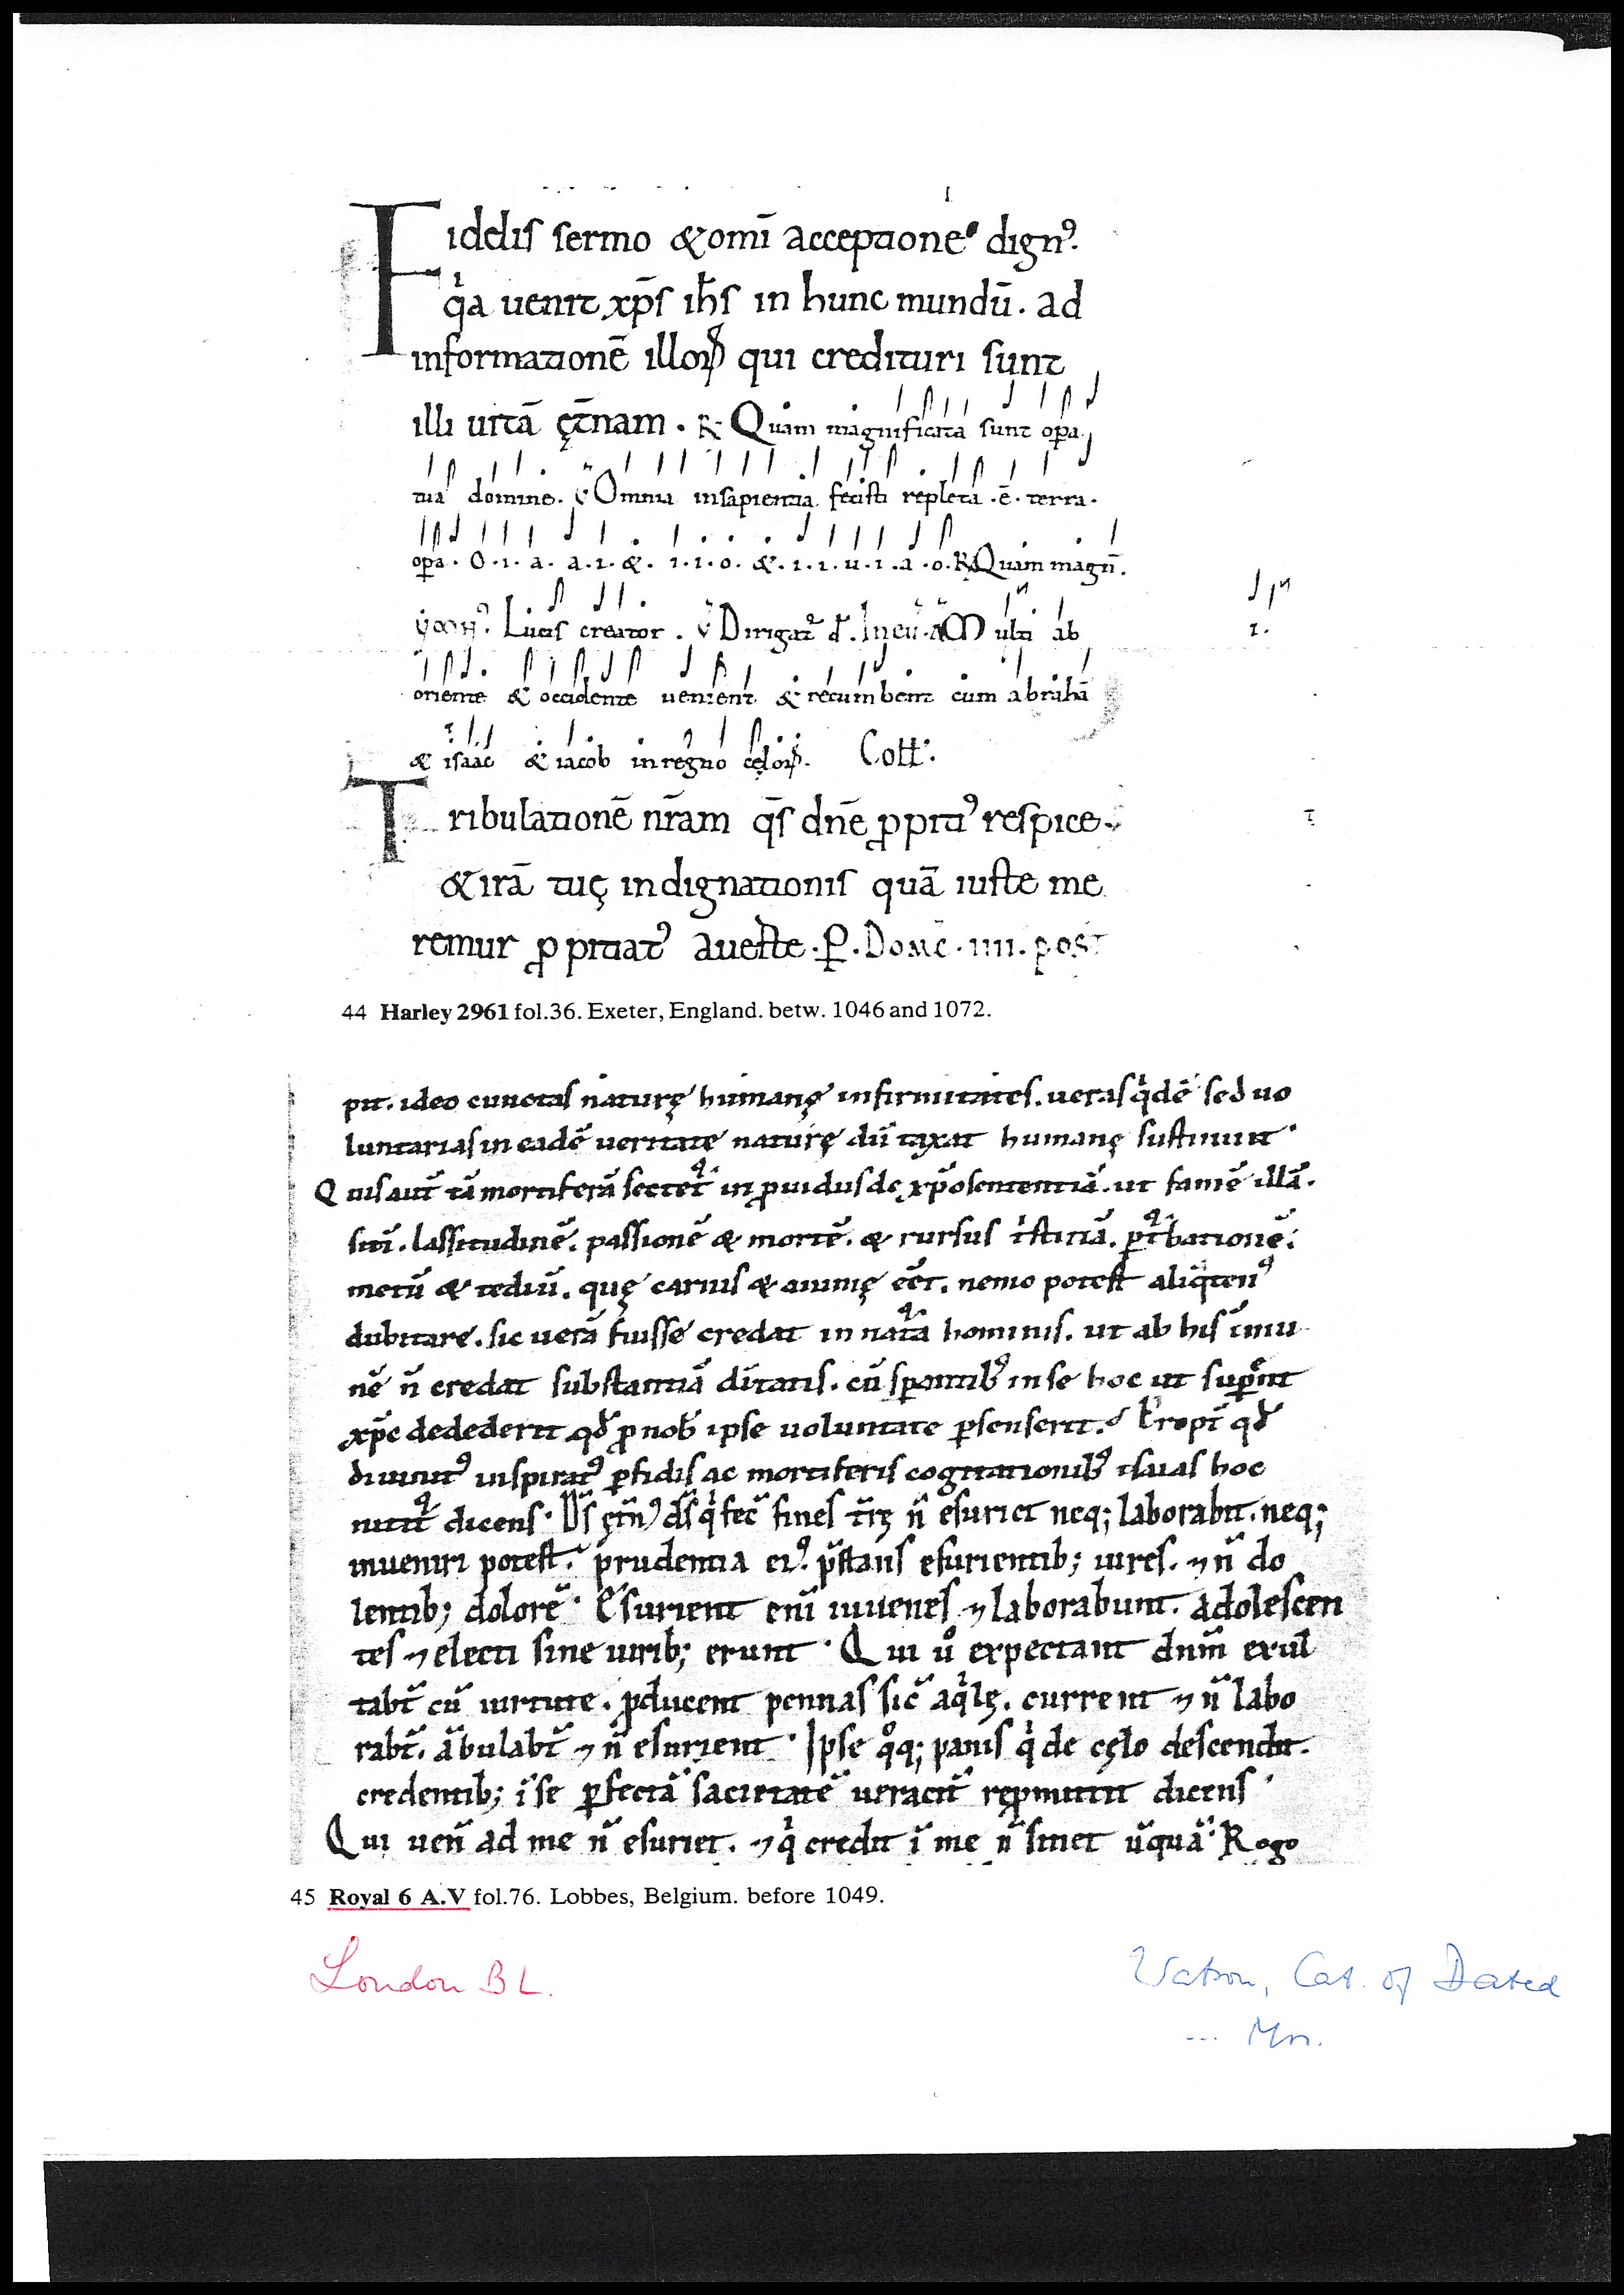 Fidelis sermo & om̄i acceptione dignꝰ.
qͥa uenit xp̄s ih̄s in hunc mundū. ad
informationē illoꝝ qui credituri sunt
illi uitā ęt̄nam. R Quam magnificata sunt oꝑa
tua domine. V Omnia insapientia fecisti repleta .ē. terra.
oꝑa. O.ı.a. a.ı.&. ı.ı.o. &.ı.ı.u.ı.a.o. R Quam magn̄.
Lucis creator. V Dirigat᷑ d̄. Ineu. A Multi ab
oriente & occidente uenient & recumbent cum abrahā
& isaac & iacob inregno cęloꝝ. Coll̄:
Tribulationē nr̄am q̄s dn̄e ꝓpitiꝰ respice.
& irā tuę indignationis quā iuste me
remur ꝓpitiatꝰ aueste. P. Domc. IIII. post
44 Harley 2961 fol.36. Exeter, England. betw. 1046 and 1072.
pit. ideo cunctas naturę humanę infirmitates. ueras qͥdē sed uo
luntarias in eadē ueritate naturę dū taxat humanę sustinuit.
Quis aut̄ tā mortiferā sectet᷑ inꝓuidus de xp̄o sententiā. ut famē illā.
sitī. lassitudinē. passionē & mortē. & rursus tͥsticiā. ꝑt᷑bationē.
metū & tediū. quę carnis & animę eēt. nemo potest aliq̄tenꝰ
dubitare. sic uerā fuisse credat in nat᷑a hominis. ut ab his īmu
nē n̄ credat substantiā diītatis. cū sꝑantibꝰ in se hoc ut suꝑent
xp̄c dedederit qđ ꝓ nob̄ ipse uoluntate ꝑsenserit. Propt̄ qđ
diuinitꝰ inspiratꝰ ꝑfidis ac mortiferis cogitationibꝰ isaias hoc
nitit᷑ dicens. Ds̄ ęt̄nꝰ ds̄ qͥ fec̄ fines t̄rę n̄ esuriet neq; laborabit. neq;
inueniri potest. prudentia eiꝰ. p̄stans esurientib; uires. ⁊ n̄ do
lentib; dolorē. Esurient enī iuuenes ⁊ laborabunt. adolescen
tes ⁊ electi sine uirib; erunt. Qui uͦ expectant dnm̄ exul
tabt̄ cū uirtute. ꝓducent pennas sic̄ aqͥlę. current ⁊ n̄ labo
rabt̄. ābulabt̄ ⁊ n̄ esurient. Ipse qͦq; panis qͥ de cęlo descendit.
credentib; ī se ꝑfectā sacietatē ueracit̄ reꝓmittit dicens.
Qui uen̄ ad me n̄ esuriet. ⁊ qͥ credit ī me n̄ sitiet ūquā. Rogo
45 Royal 6 A.V fol.76. Lobbes, Belgium. before 1049.
London BL.
Watson, Cat. of Dated
... Mss.